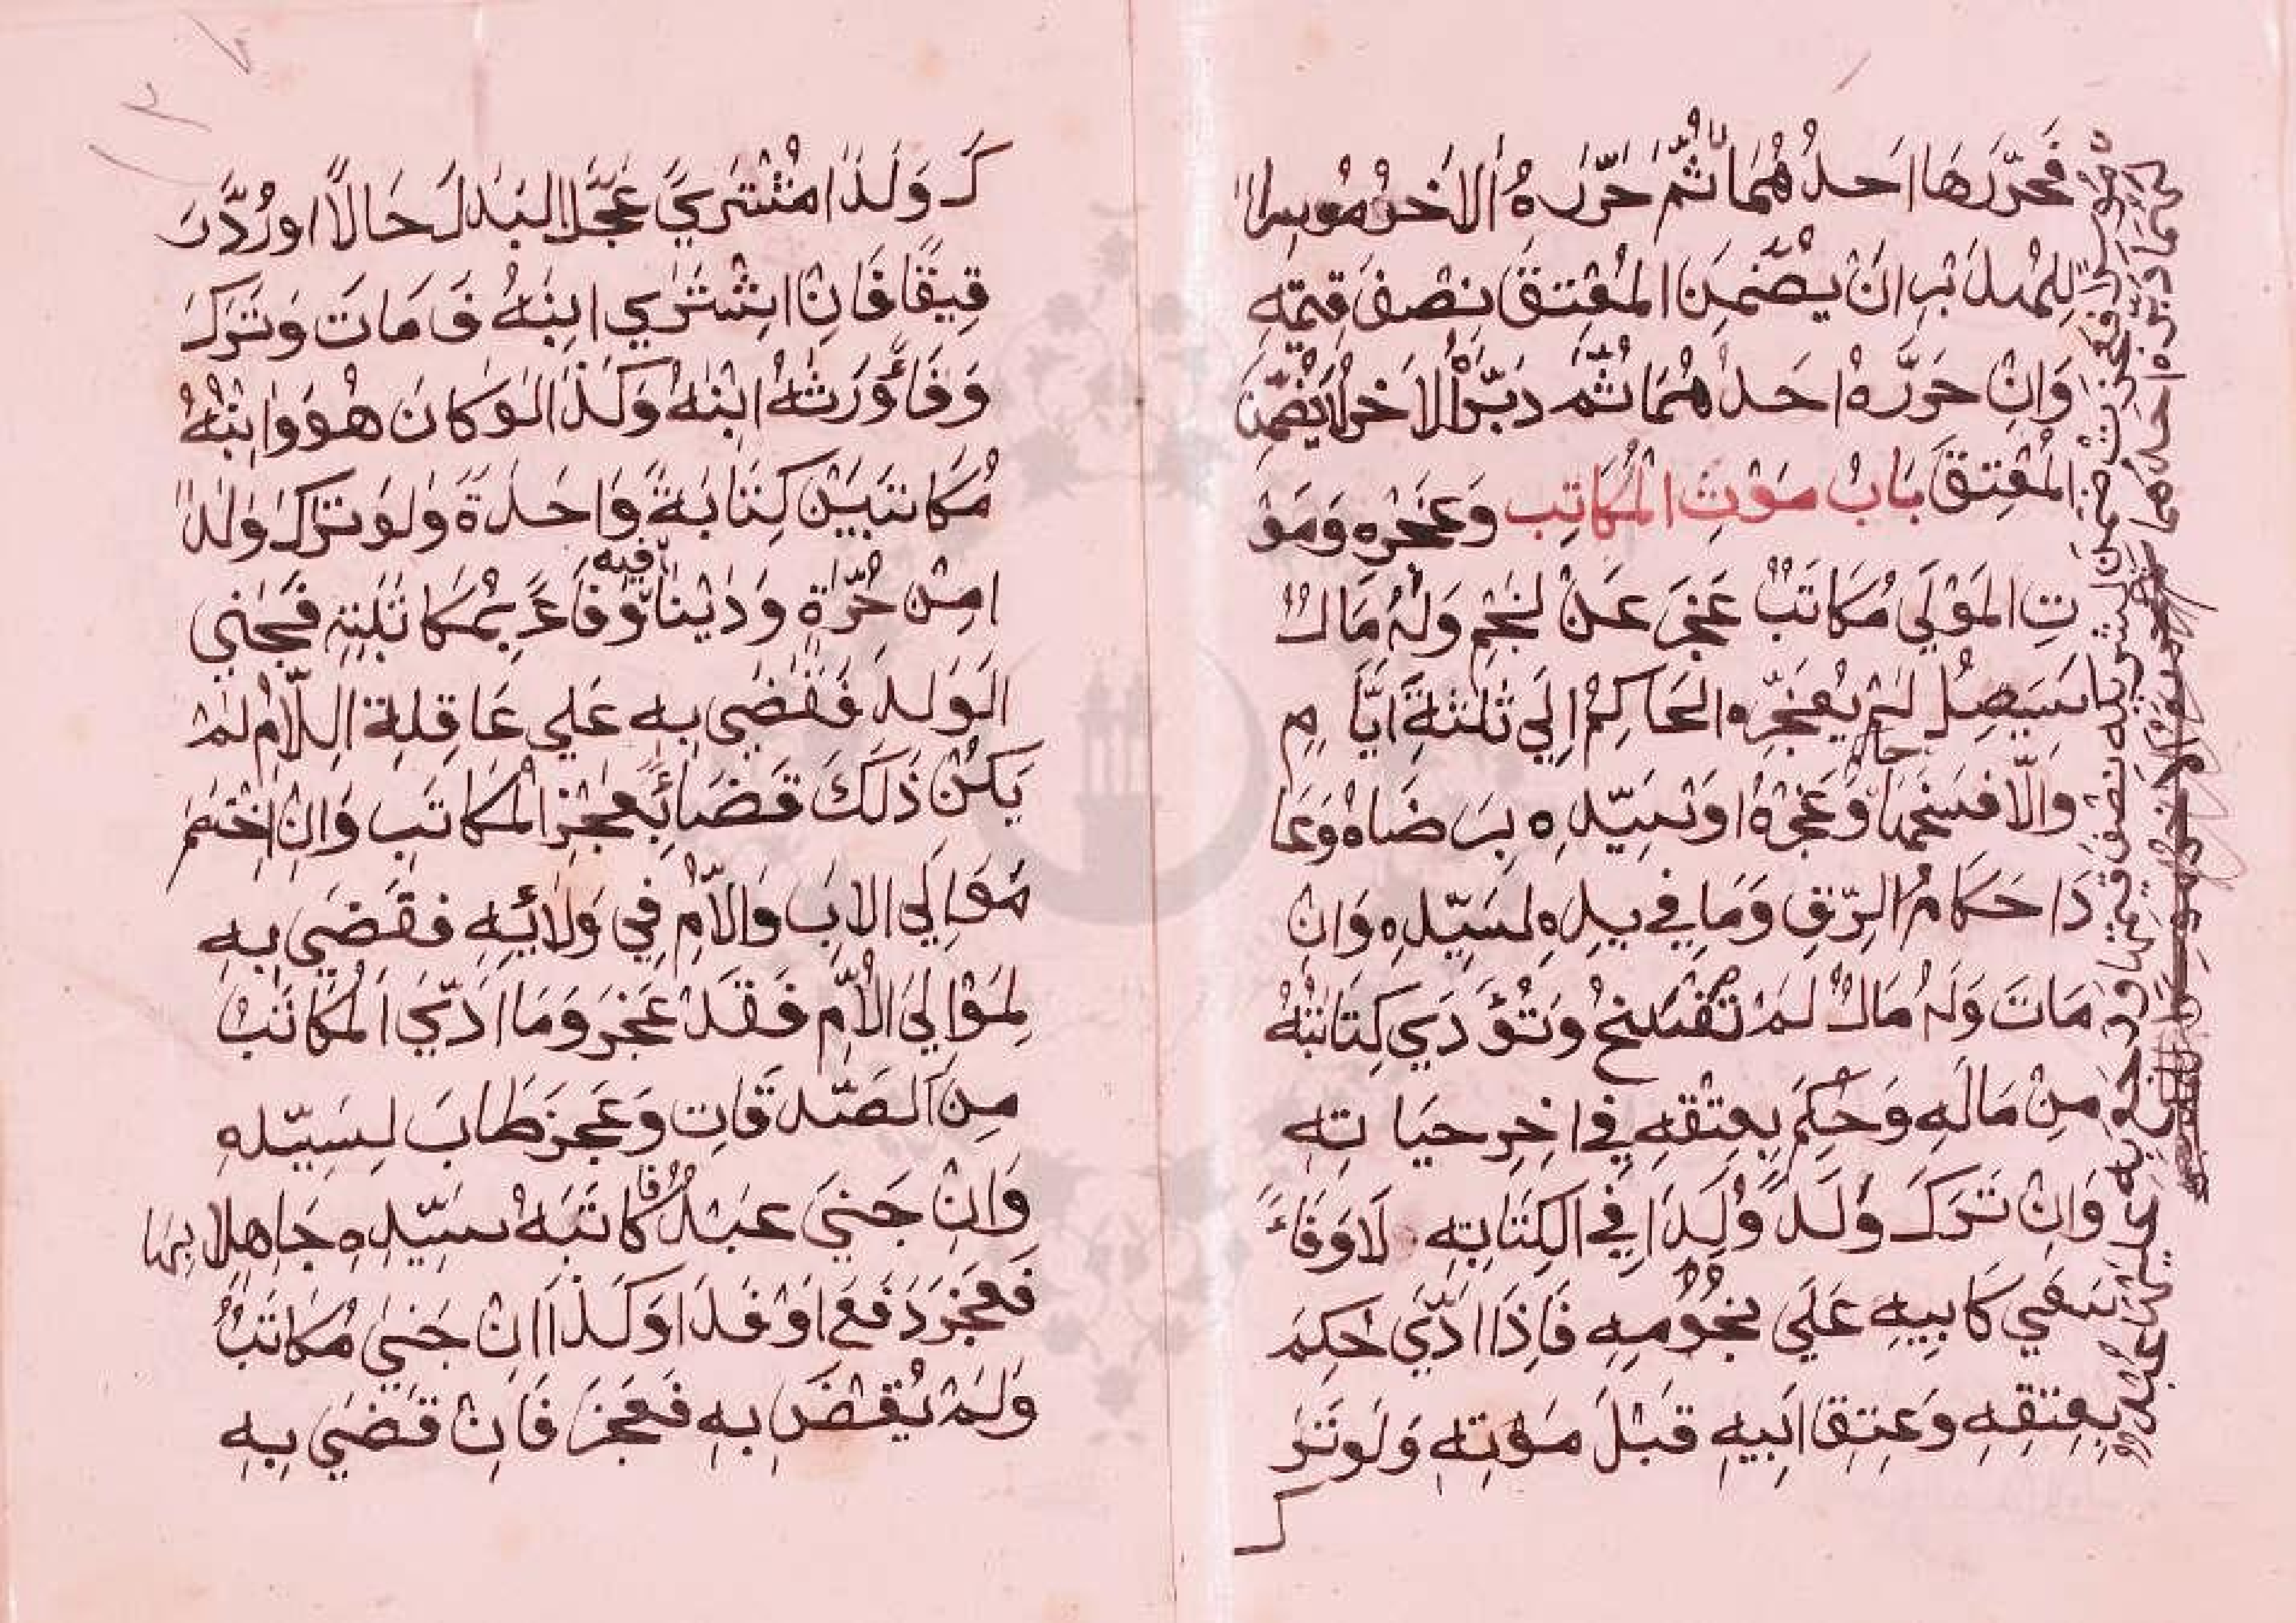 فَحَرَّرَهَا احَدُهُمَا ثُمَّ حَرَّرَهُ الاخَرُ مُوسِرًا
لِلمُدَبِّرِ انْ يُضَمِّنَ المُعْتِقَ نِصْفَ قِيمَتِه
وَانْ حَرَّرَهُ احَدُهُمَا ثُمَّ دَبَّرَ الاخَرُ لَا يُضَمِّنُ
المُعْتِقَ بَابُ مَوْتِ المُكَاتِب وَعَجْزِهِ وَمَوْ
تِ المَوْلَي مُكَاتَبٌ عَجَزَ عَنْ نَجْمٍ وَلَهُ مَالٌ
سَيَصِلُ لَمْ يُعَجِّزْهُ الحَاكِمُ اِلَي ثَلثَةِ ايَّا مٍ
وَالَّا فَسَخَهَا وَعَجَّزَهُ اوْ سَيِّدِهِ بِرَضَاهُ وَعَا
دَ احَكَامُ الرِّقِ وَمَا فِي يَدِهِ لِسَيِّدِهِ وَانْ
مَاتَ وَلَهُ مَالٌ لَمْ تُفْسَخُ وَتُؤَ دَي كِتَابَتُهُ
مِنْ مَالَهِ وَحُكِمَ بِعِتْقِهِ فِي اخِرِ حَيَا تِهِ
وَانْ تَرَكَ وَلَدً وُلِدَا فِي الكِتَابتِهِ لَا وَفَاءً
سَعَي كَابِيهِ عَلَي نُجُومِهِ فَاِذَا ادَّي حُكِمَ
بِعِتْقِهِ وَعِتِقِ ابِيهِ قَبْلَ مَوْتِهِ وَلَوتَرَ
ك
كَ وَلَدًا مُشْتَرِيً عَجَّلَ البَدَلَ حَالًا اورُدَّ رَ
قِيقًا فَانِ اشْتَرَي ابْنَهُ فَمَاتَ وَتَرَكَ
وَفَاءً وَرَثَهُ ابْنُهُ وَكَذَا لَوكَانَ هُوَ وَابْنُهُ
مُكَاتَبَيْنِ كِتَابَةً وَاحَدَةً وَلَوتَرَكَ وَلَدً
امِنْ حُرَّةٍ وَدَيْنًا فِيهِ وَفَاءً بِمُكَاتَبَتِهِ فَجَنَي
الوَلَدِ فَقُضَي بِهِ عَلي عَاقِلةِ اللّامُ لَمْ
يَكُنْ ذَلَكَ قَضَائً بِعَجْزِ المُكاتَبِ وَانِ اخْتَصَمَ
مَوَالِي الابِ وَالاُمِ فِي وَلَائِهِ فَقَضَي بِهِ
لِمَوَالِيَ الاُمِّ فَقَدْ عَجَزَ وَمَا ادَّيَ المُكَاتَبُ
مِنَ الصَّدَقَاتِ وَعَجزَ طَابَ لِسَيِّدِهِ
وَانْ جَنَيَ عَبْدٌ فَا كَاتَبَهُ سَيِّدِهِ جَاهِلًا بِهَا
فَعَجزَ دَفَعَ اوْ فَدَا وَكَذَا انْ جَنَي مُكَاتَبٌ
وَلَمْ يُقْضَ بِهِ فَعَجزَ فَانْ قَضَي بِهِ